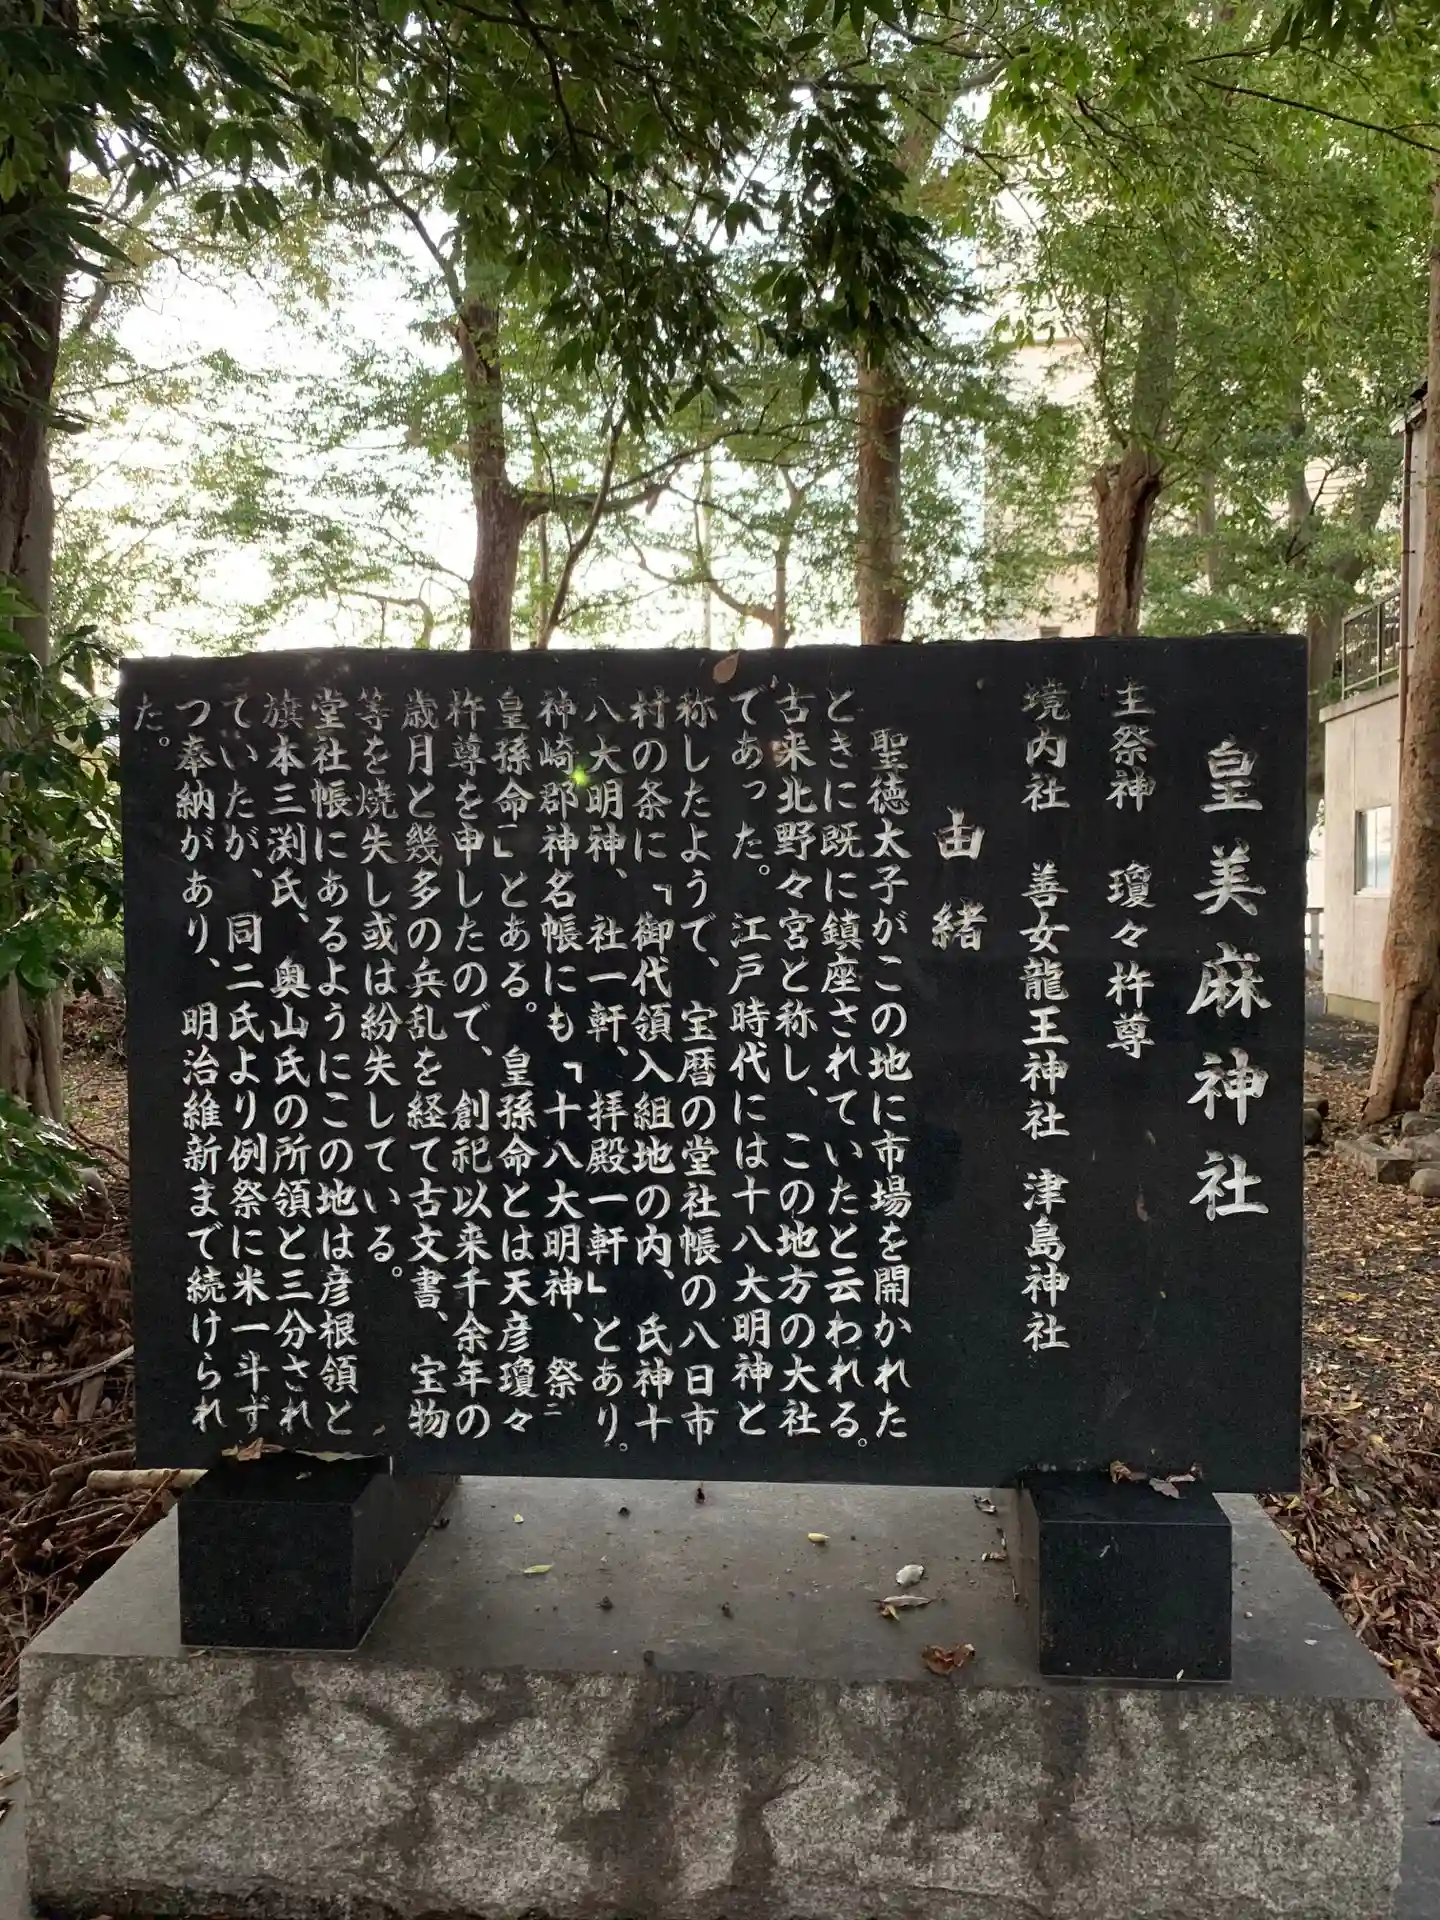 皇美麻神社
主祭神　瓊々杵尊
境内社　善女龍王神社　津島神社
由緒
聖徳太子がこの地に市場を開かれた
ときに既に鎮座されていたと云われる。
古来北野々宮と称し、この地方の大社
であった。江戸時代には十八大明神と
称したようで、宝暦の堂社帳の八日市
村の条に「御代領入組地の内、氏神十
八大明神、社一軒、拝殿一軒」とあり。
神崎郡神名帳にも「十八大明神、祭ニ
皇孫命」とある。皇孫命とは天彦瓊々
杵尊を申したので、創祀以来千余年の
歳月と幾多の兵乱を経て古文書、宝物
等を焼失し或は紛失している。
堂社帳にあるようにこの地は彦根領と
旗本三渕氏、奥山氏の所領と三分され
ていたが、同二氏より例祭に米一斗ず
つ奉納があり、明治維新まで続けられ
た。